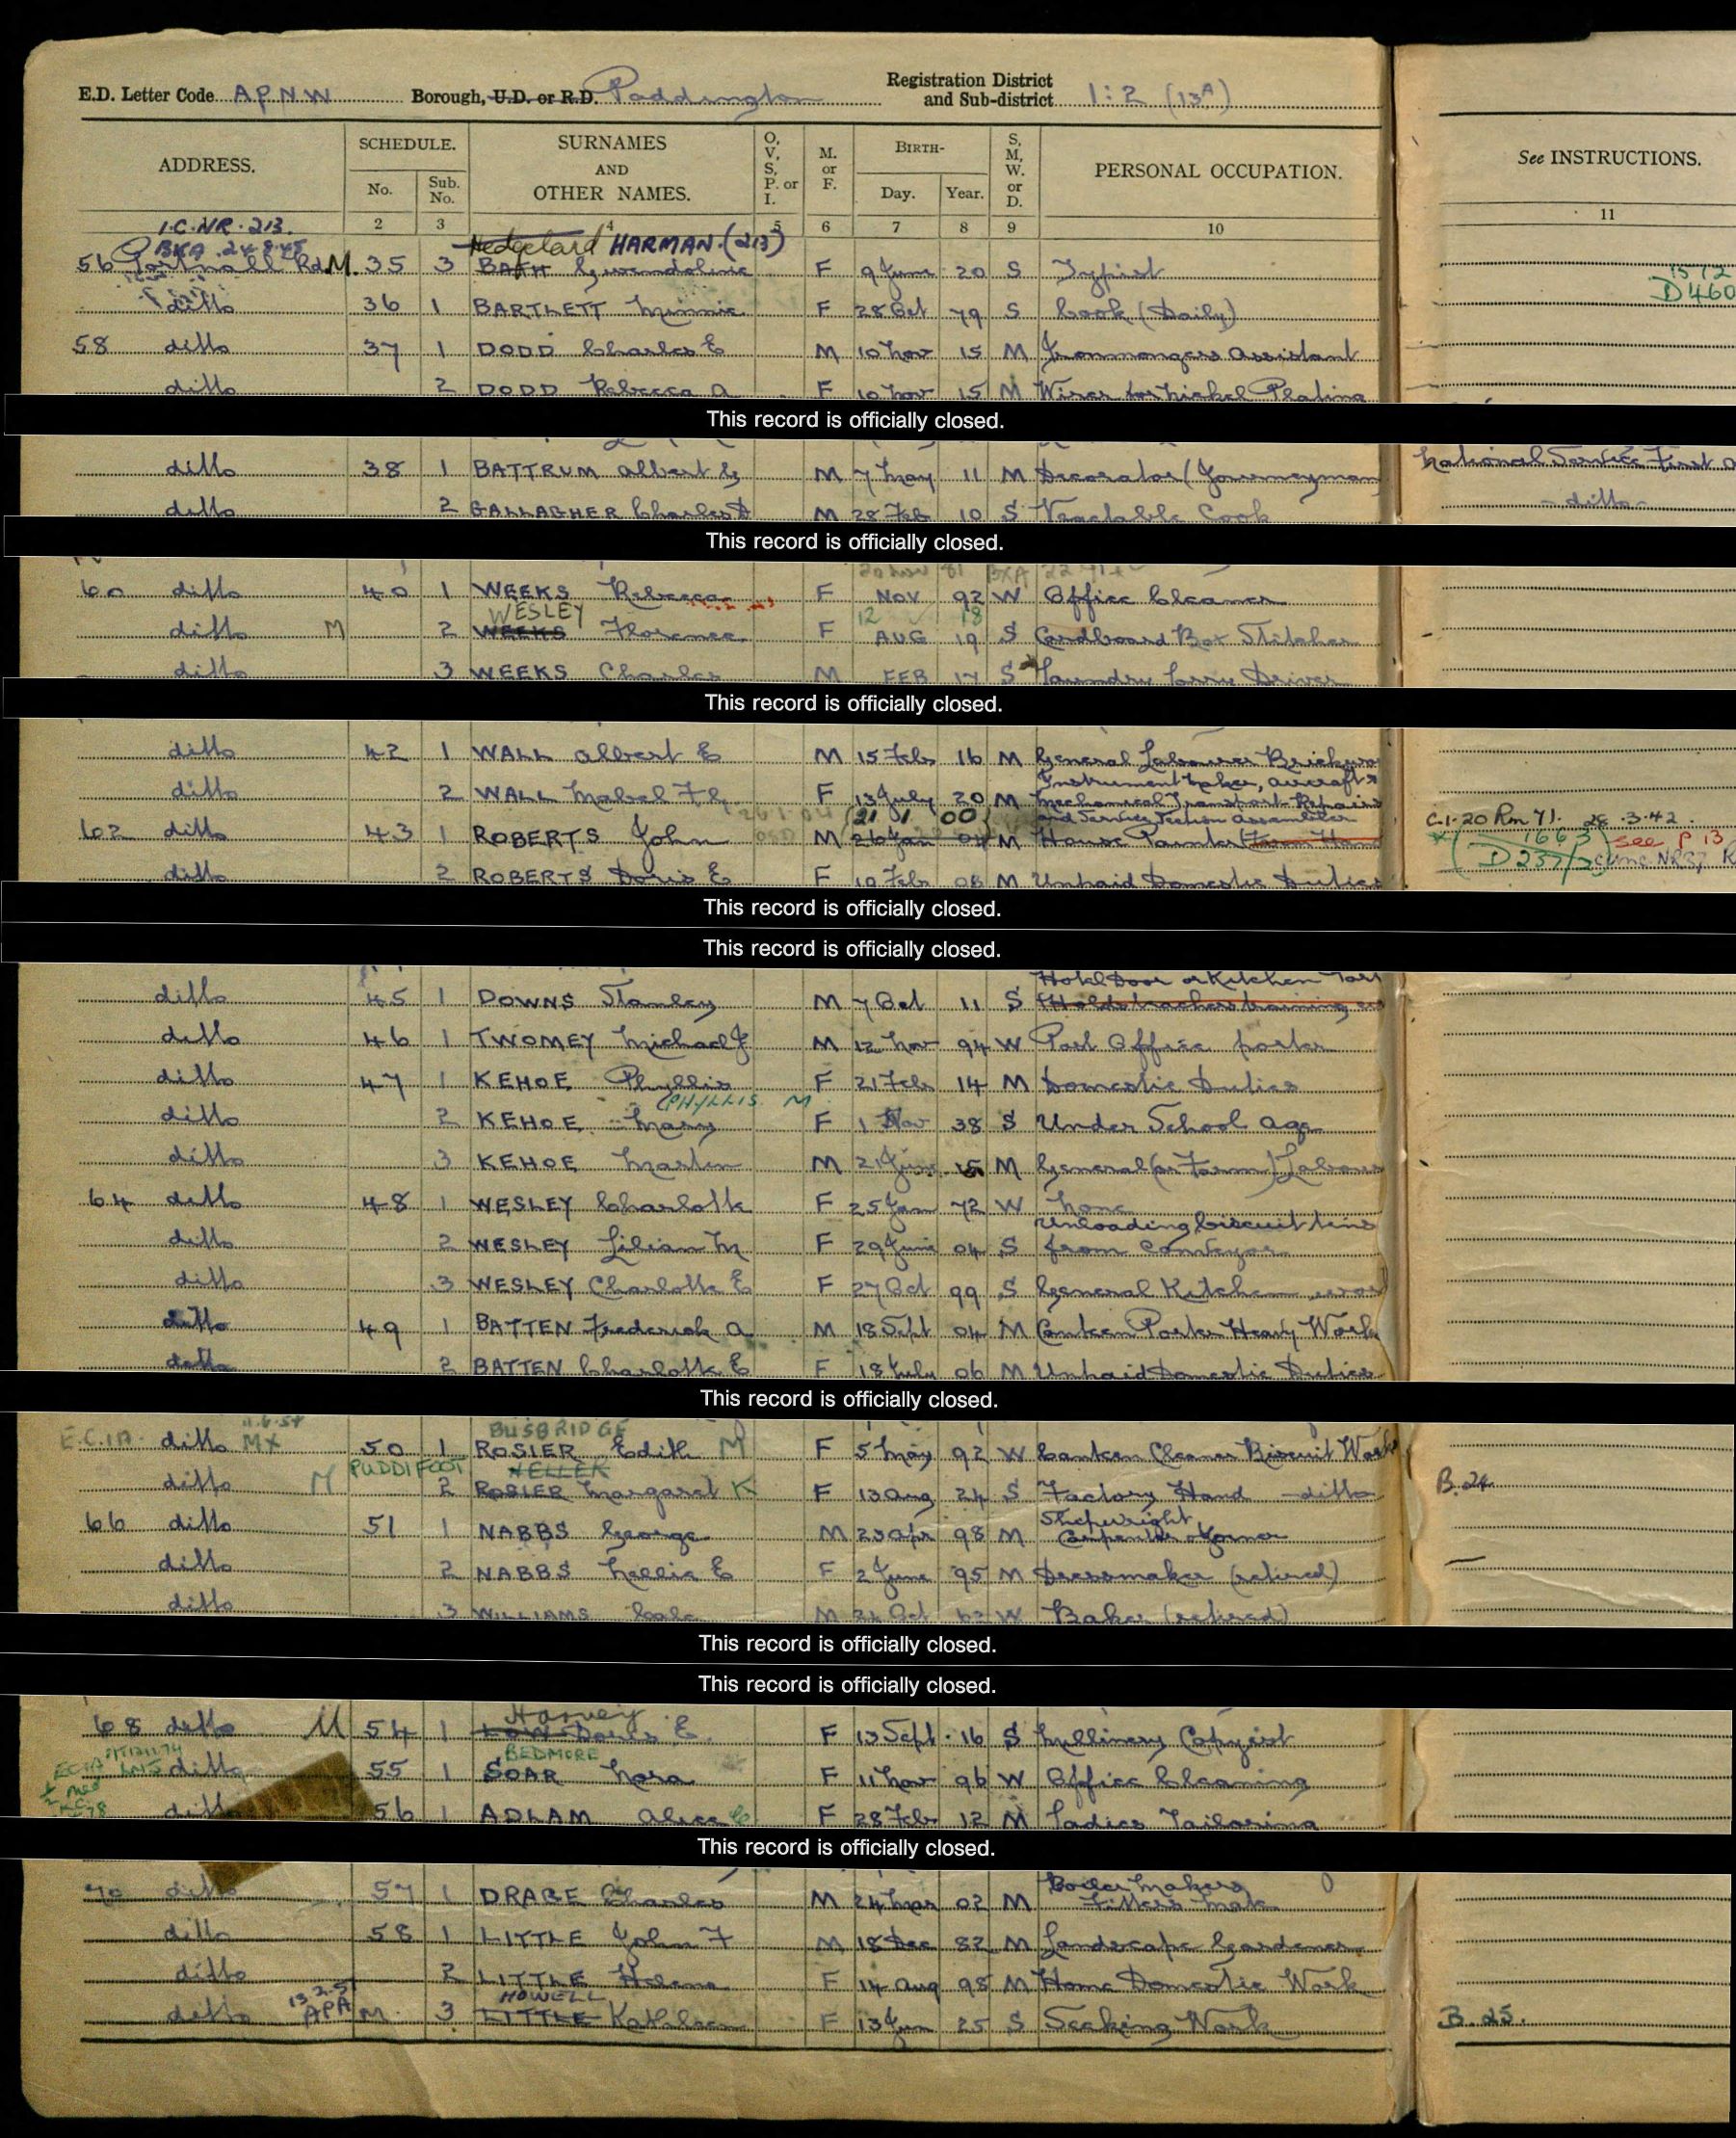 E.D. Letter Code APNW Borough, U.D. or R.D. Paddington Registration District and Sub-district 1:2 (13A)
ADDRESS. SCHEDULE. No. Sub. No. SURNAMES AND OTHER NAMES. O, V, S, P. or I. M. or F. BIRTH- Day. Year. S, M, W. or D. PERSONAL OCCUPATION. See INSTRUCTIONS.
2 3 4 5 6 7 8 9 10 11
I.C.NR.213.
BKA 24.8.45 HARMAN (213)
56 Portnall Rd M 35 3 BATH Gwendoline F 9 June 20 S Typist 1512
D460
ditto 36 1 BARTLETT Minnie F 28 Oct 79 S Cook (Daily)
58 ditto 37 1 DODD Charles E M 10 Nov 15 M Ironmongers Assistant
ditto 2 DODD Rebecca A F 10 Nov 15 M Wirer for Nickel Plating
This record is officially closed.
ditto 38 1 BATTRUM Albert G M 7 May 11 M Decorator (Journeyman National Service First
ditto 2 GALLAGHER Charles M 28 Feb 10 S Vegetable Cook ditto
This record is officially closed.
60 ditto 40 1 WEEKS Rebecca F NOV 92 W Office Cleaner
WESLEY 12 18
ditto M 2 WEEKS Florence F AUG 19 S Cardboard Box Stitcher
ditto 3 WEEKS Charles M FEB 17 S Laundry Lorry Driver
This record is officially closed.
ditto 42 1 WALL Albert E M 15 Feb 16 M General Labourer
Instrument Maker, aircraft
ditto 2 WALL Mabel F M F 13 July 20 M Mechanical Transport Repairs
and Service Section Assembler
21 1 00
62 ditto 43 1 ROBERTS John M 26 Jan 04 M House Painter C.1.20 Rm 71. 28.3.42.
1663 see P 13
D237/2
ditto 2 ROBERTS Doris E F 10 Feb 08 M Unpaid Domestic Duties
This record is officially closed.
This record is officially closed.
Hotel Door or Kitchen Port
ditto 45 1 DOWNS Stanley M 7 Oct 11 S
ditto 46 1 TWOMEY Michael J M 12 Nov 94 W Post Office porter
ditto 47 1 KEHOE Phyllis F 21 Feb 14 M Domestic Duties
PHYLLIS M
ditto 2 KEHOE Mary F 1 Nov 38 S Under School age
ditto 3 KEHOE Martin M 21 June 15 M General (or Farm) Labour
64 ditto 48 1 WESLEY Charlotte F 25 Jan 72 W None
Unloading biscuit tins
ditto 2 WESLEY Lilian M F 29 June 04 S from conveyor
ditto 3 WESLEY Charlotte E F 27 Oct 99 S General Kitchen work
ditto 49 1 BATTEN Frederick A M 18 Sept 04 M Canteen Porter Heavy Work
ditto 2 BATTEN Charlotte E F 18 July 06 M Unpaid Domestic Duties
This record is officially closed.
11.6.54 BUSBRIDGE
E.C.1A. ditto MX 50 1 ROSIER Edith M F 5 May 92 W Canteen Cleaner Biscuit Works
PUDDIFOOT HELLEK
ditto M 2 ROSIER Margaret K F 13 Aug 24 S Factory Hand ditto B.24
Shipwright
66 ditto 51 1 NABBS George M 23 Apr 98 M Carpenter Joiner
ditto 2 NABBS Nellie E F 2 June 95 M Dressmaker (retired)
ditto 3 WILLIAMS M 24 Oct W Baker (retired)
This record is officially closed.
This record is officially closed.
Harvey
68 ditto M 54 1 LOW Doris E. F 13 Sept 16 S Millinery Copyist
BEDMORE
ditto 55 1 SOAR Nora F 11 Nov 96 W Office Cleaning
ditto 56 1 ADLAM Alice C F 28 Feb 12 M Ladies Tailoring
This record is officially closed.
Boiler Makers
70 ditto 57 1 DRAGE Charles M 24 Mar 02 M Fitters Mate
ditto 58 1 LITTLE John F M 18 Dec 82 M Landscape Gardener
ditto 2 LITTLE Helena F 14 Aug 98 M Home Domestic Work
13.2.51 HOWELL
ditto APA M 3 LITTLE Kathleen F 13 Jun 25 S Seeking Work B.25.